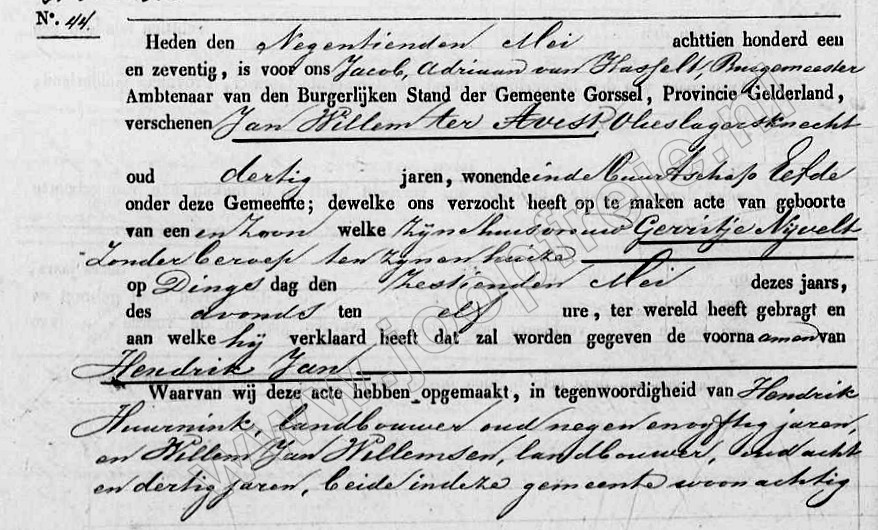 No. 44.
Heden den Negentienden Mei achttien honderd een
en zeventig, is voor ons Jacob, Adriaan van Hasselt, Burgemeester
Ambtenaar van den Burgerlijken Stand der Gemeente Gorssel, Provincie Gelderland,
verschenen Jan Willem ter Avest, Vleeslagersknecht
oud dertig jaren, wonende in de Buurtschap Eefde
onder deze Gemeente; dewelke ons verzocht heeft op te maken acte van geboorte
van een en Zoon welke Zyne huisvrouw Gerritje Nijvelt
Zonder beroep ten zynen huize
op Dings dag den Zestienden Mei dezes jaars,
des avonds ten elf ure, ter wereld heeft gebragt en
aan welke hij verklaard heeft dat zal worden gegeven de voornaamen van
Hendrik Jan
Waarvan wij deze acte hebben opgemaakt, in tegenwoordigheid van Hendrik
Huurnink, landbouwer oud negen en vyftig jaren,
en Willem Jan Willemsen, landbouwer, oud acht
en dertig jaren, beide in deze gemeente woonachtig
www.joopfreje.nl